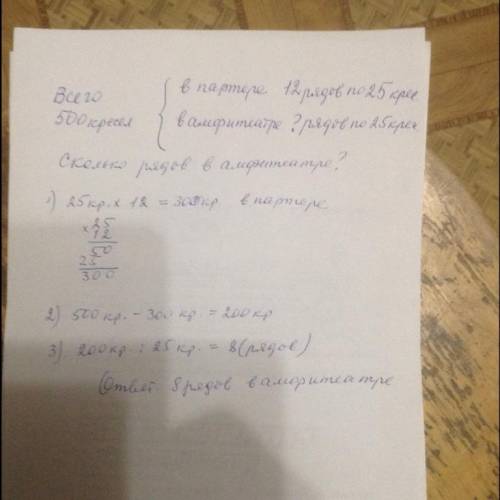 Всего { в партере 12 рядов по 25 крес
500 кресел в амфитеатре ? рядов по 25 крес
Сколько рядов в амфитеатре?
1) 25кр. х 12 = 300кр в партере
х 25
12
50
25
300
2) 500 кр. - 300 кр. = 200 кр
3) 200 кр. : 25 кр. = 8 (рядов)
Ответ 8 рядов в амфитеатре